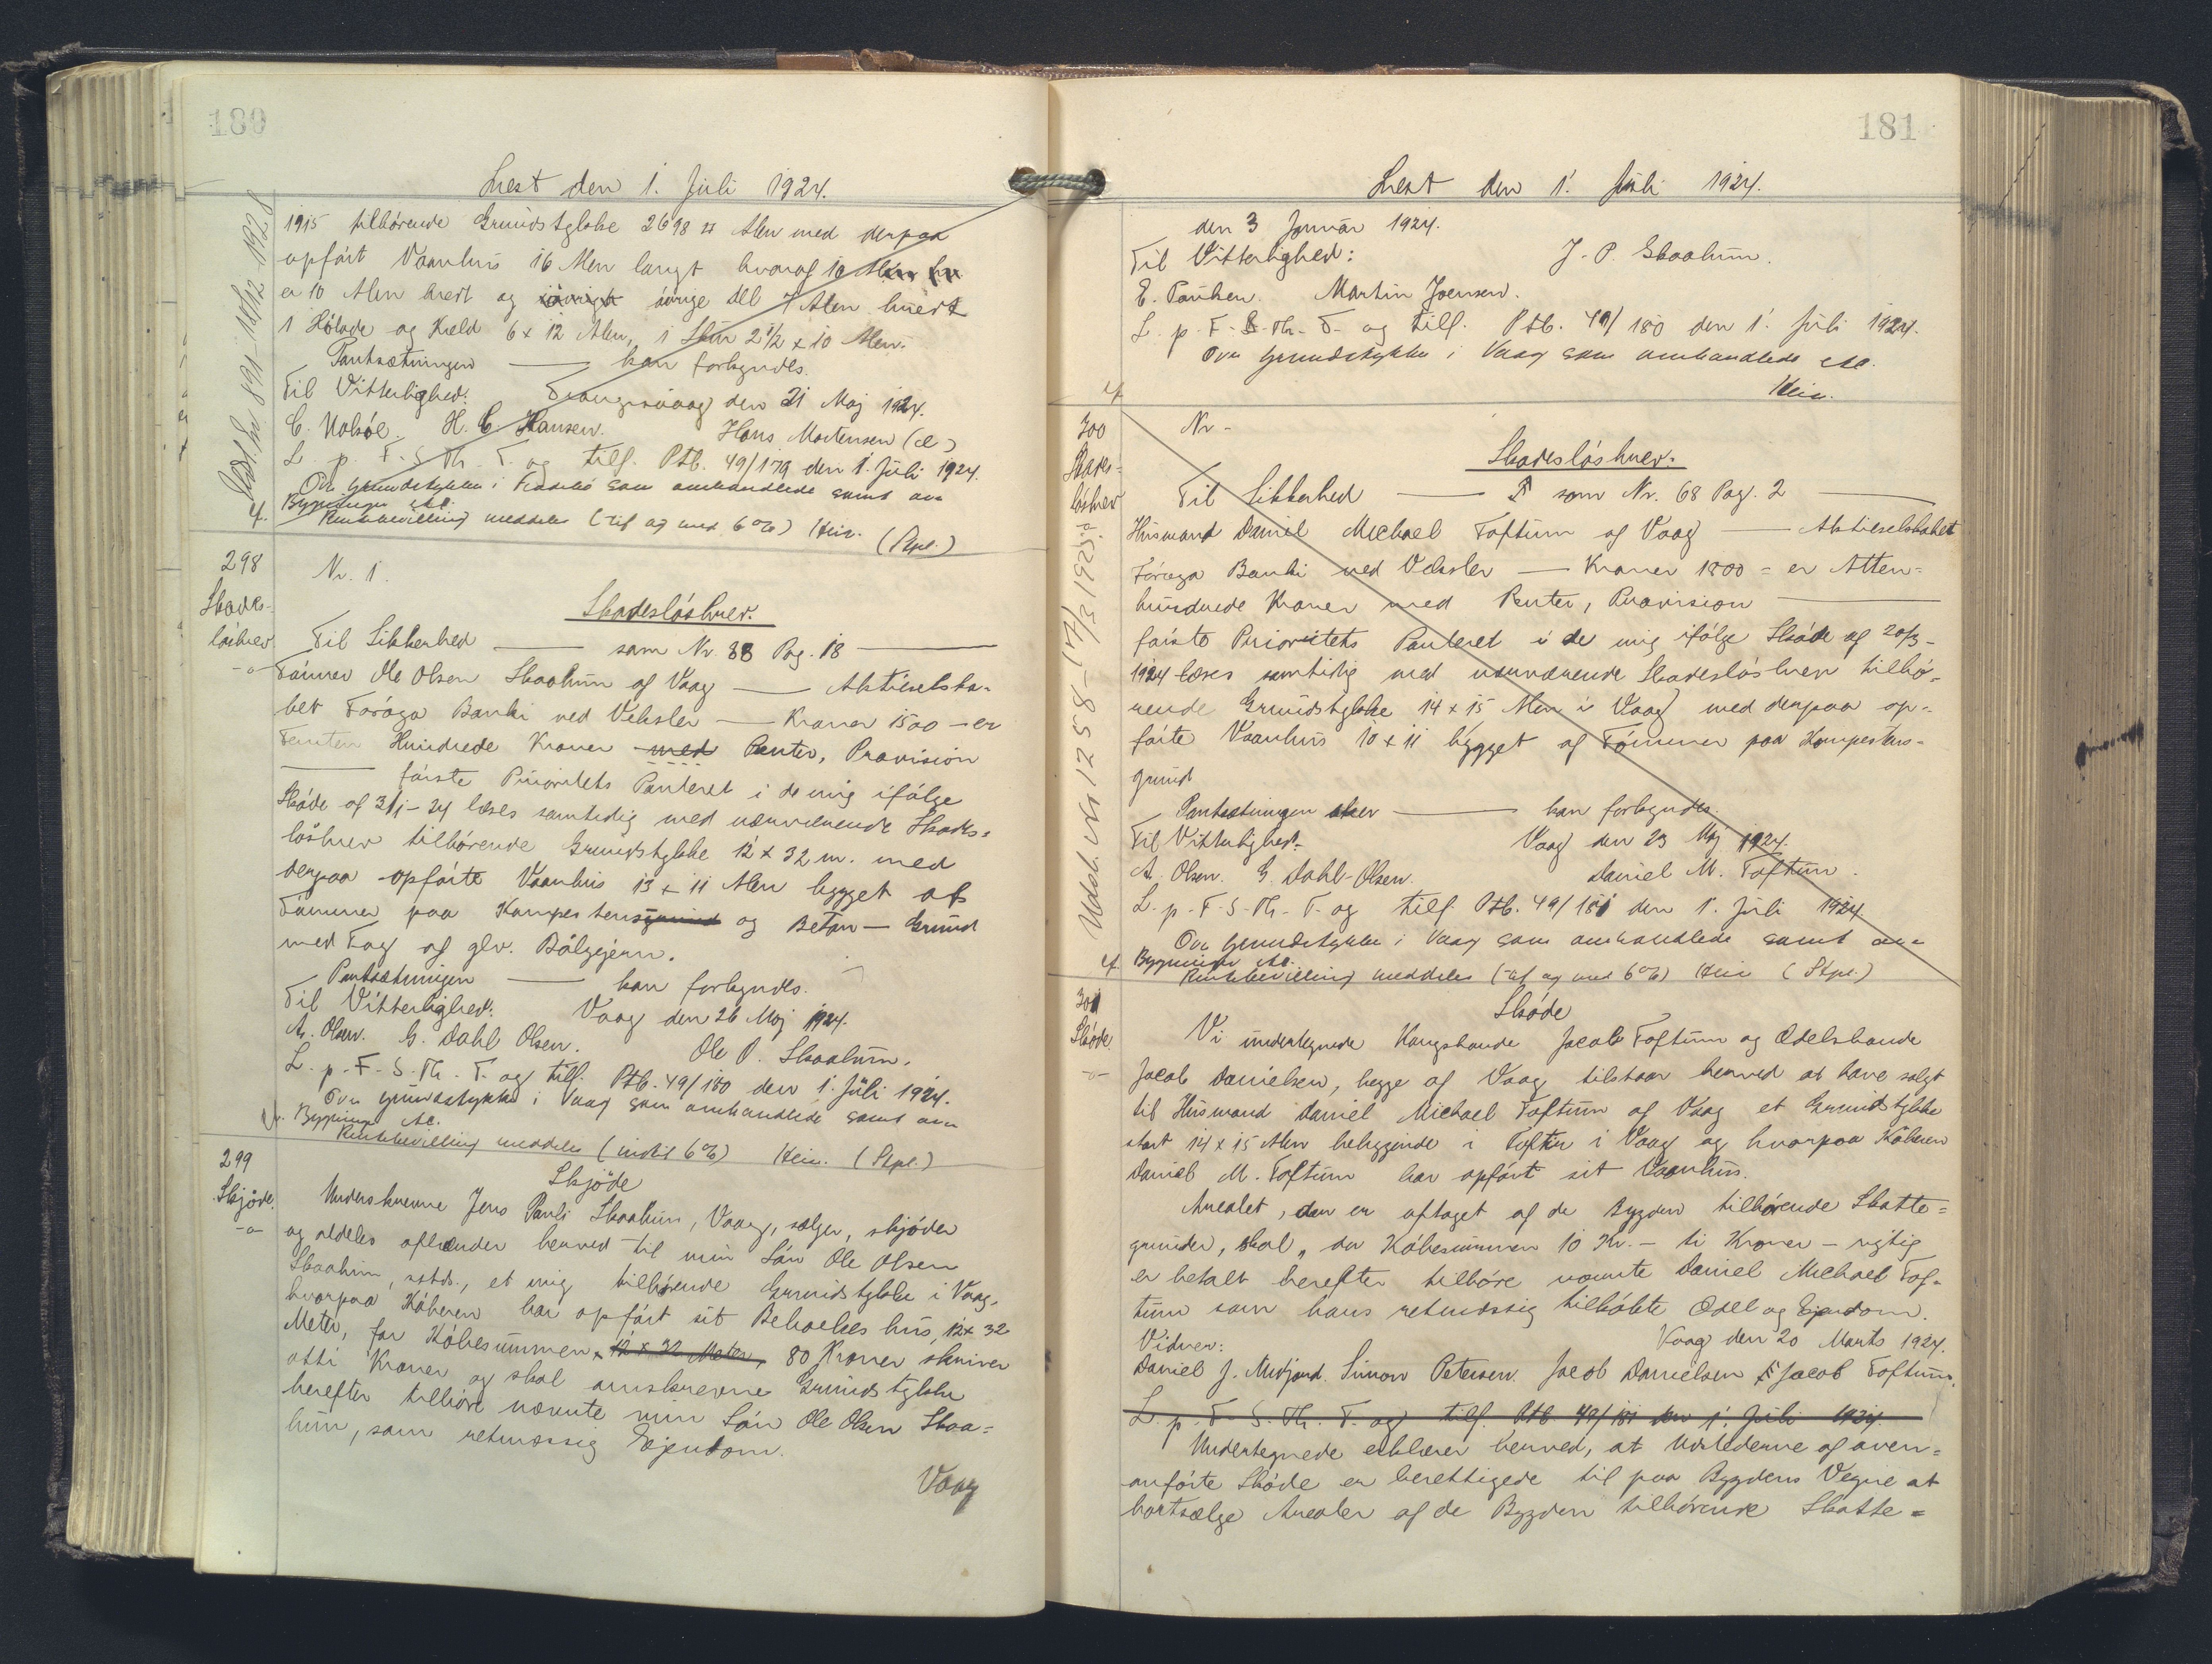 180
Læst den 1. Juli 1924.
1915 tilhørende Grundstykke 2698 ¤ Alen med derpaa
opført Vaanhus 16 Alen langt hvoraf 10 Alen
er 10 Alen bredt og øvrige del 7 Alen bredt
1 Hølade og Kæld 6 x 12 Alen, 1 Skur 2 1/2 x 10 Alen.
Pantsætningen — kan forlyndes.
Til Vitterlighed: Trangisvaag den 21 Maj 1924.
C. Holsøe. H. C. Hansen. Hans Mortensen
L. p. F. S. Th. T. og tilf. Ptb. 49/179 den 1. Juli 1924.
Ovn Grundstykke i som omhandlede samt
Bygninger
Rentebevilling meddeles (til og med 6%) Hein. (Stpl.)
Udsl. 891 18/12 1928
298
Skades-
løsbrev
-o-
Nr. 1.
Skadesløsbrev.
Til Sikkerhed — som Nr. 38 Pag. 18 —
Tømrer Ole Olsen Skaalum af Vaag — Aktieselska-
bet Føroya Banki ved Veksler — Kroner 1500 — er
Femten Hundrede Kroner med Renter, Provision
— første Prioritets Panteret i de mig ifølge
Skøde af 3/1 - 24 læses samtidig med nærværende Skades-
løsbrev tilhørende Grundstykke 12 x 32 m. med
derpaa opførte Vaanhus 13 x 11 Alen bygget af
Tømmer paa Kampestensgrund og Beton — Grund
med Tag af glv. Bølgejern.
Pantsætningen — kan forlyndes.
Til Vitterlighed: Vaag den 26 Maj 1924.
A. Olsen. G. Dahl Olsen. Ole O. Skaalum.
L. p. F. S. Th. T. og tilf. Ptb. 49/180 den 1. Juli 1924.
Ovn Grundstykke i Vaag som omhandlede samt
Bygninger
Rentebevilling meddeles (indtil 6%) Hein. (Stpl.)
299
Skjøde.
-o-
Skjøde
Underskrevne Jens Pauli Skaalum, Vaag, sælger, skjøder
og aldeles afhænder herved til min Søn Ole Olsen
Skaalum, sstds., et mig tilhørende Grundstykke i Vaag,
hvorpaa Køberen har opført sit Beboelses hus, 12 x 32
Meter, for Købesummen, 12 x 32 Meter, 80 Kroner skriver
otti Kroner og skal omskrevne Grundstykke
herefter tilhøre nævnte min Søn Ole Olsen Skaa-
lum, som retmæssig Ejendom.
Vaag
181
Læst den 1. Juli 1924.
den 3 Januar 1924.
Til Vitterlighed: J. P. Skaalum.
E. Poulsen. Martin Joensen.
L. p. F. S. Th. T. og tilf. Ptb. 49/180 den 1. Juli 1924.
Ovn Grundstykke i Vaag som omhandlede
Hein.
300
Skades-
løsbrev
-o-
Nr -
Skadesløsbrev.
Til Sikkerhed — som Nr. 68 Pag. 2 —
Husmand Daniel Michael Toftum af Vaag — Aktieselskabet
Føroya Banki ved Veksler — Kroner 1800 = er Atten-
hundrede Kroner med Renter, Provision —
første Prioritets Panteret i de mig ifølge Skøde af 20/3 -
1924 læses samtidig med nærværende Skadesløsbrev tilhø-
rende Grundstykke 14 x 15 Alen i Vaag med derpaa op-
førte Vaanhus 10 x 11 bygget af Tømmer paa Kampestens-
grund
Pantsætningen — kan forlyndes.
Til Vitterlighed. Vaag den 23 Maj 1924.
A. Olsen. G. Dahl-Olsen. Daniel M. Toftum.
L. p. F. S. Th. T. og tilf. Ptb. 49/181 den 1. Juli 1924
Ovn Grundstykke i Vaag som omhandlede samt
Bygninger
Rentebevilling meddeles (til og med 6%) Hein (Stpl.)
Udsl. 1258 - 17/3 1925
301
Skøde.
-o-
Skøde
Vi undertegnede Kongsbonde Jacob Toftum og Odelsbonde
Jacob Danielsen, begge af Vaag tilstaar herved at have solgt
til Husmand Daniel Michael Toftum af Vaag et Grundstykke
stort 14 x 15 Alen beliggende i Tofter i Vaag og hvorpaa Køberen
Daniel M. Toftum har opført sit Vaanhus.
Arealet, der er aftaget af de Bygden tilhørende Skatte-
grunder, skal, da Købesummen 10 Kr. — ti Kroner — rigtig
er betalt herefter tilhøre nævnte Daniel Michael Tof-
tum som hans retmæssig tilkøbte Odel og Ejendom.
Vidner: Vaag den 20 Marts 1924.
Daniel J. Midjord. Simon Petersen. Jacob Danielsen Jacob Toftum.
L. p. F. S. Th. T. og tilf. Ptb. 49/181 den 1. Juli 1924.
Undertegnede erklærer herved, at Udstederne af oven-
anførte Skøde er berettigede til paa Bygdens Vegne at
bortsælge Arealer af de Bygden tilhørende Skatte =